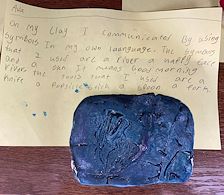 Ava
On my clay I communicated By using
Symbols In my own laanguage. The Symbols
that I used are a River a happy face
River a own It means Good morning
The tools that I used are a
Knife a Popsicle stick a spoon a fork